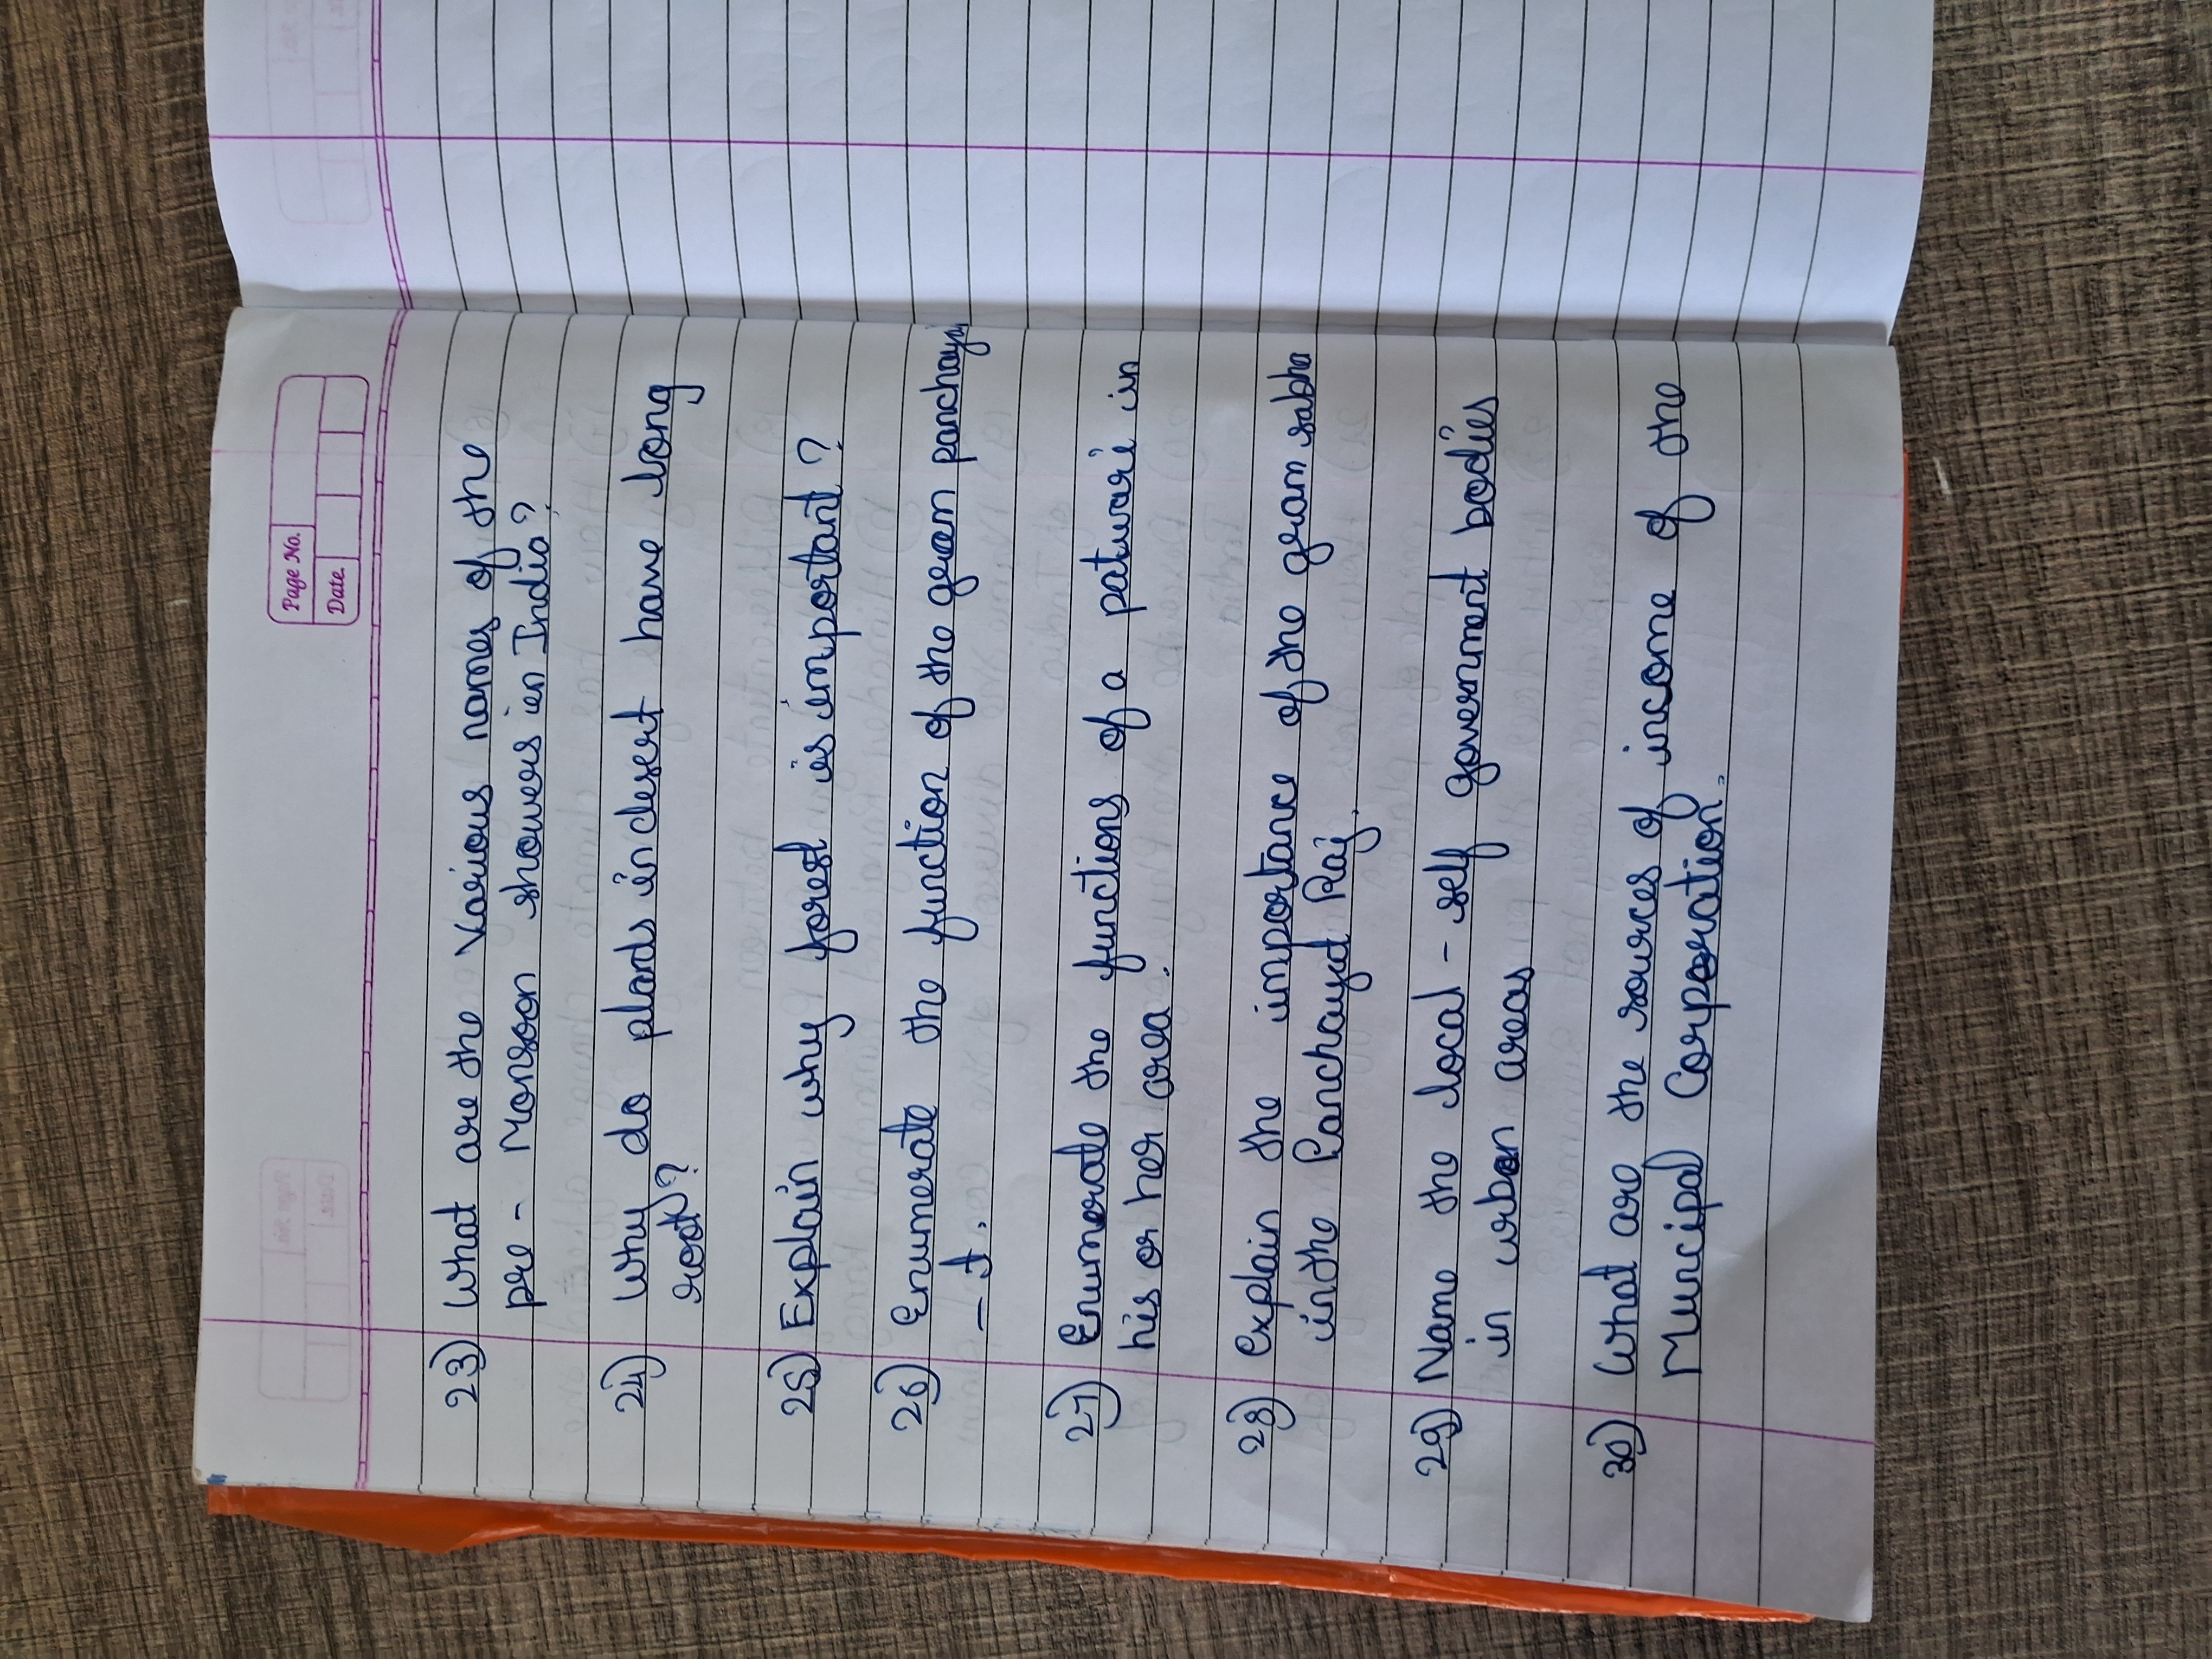 Page No.
Date
23) What are the Various names of the
pre - Monsoon showers in India?
24) Why do plants in desert have long
root?
25) Explain why forest is important?
26) Enumerate the function of the gram panchaya
- t.
27) Enumerate the functions of a patwari in
his or her area.
28) Explain the importance of the gram sabha
in the Panchayat Raj.
29) Name the local - self government bodies
in urban areas
30) What are the sources of income of the
Muncipal Corporation.